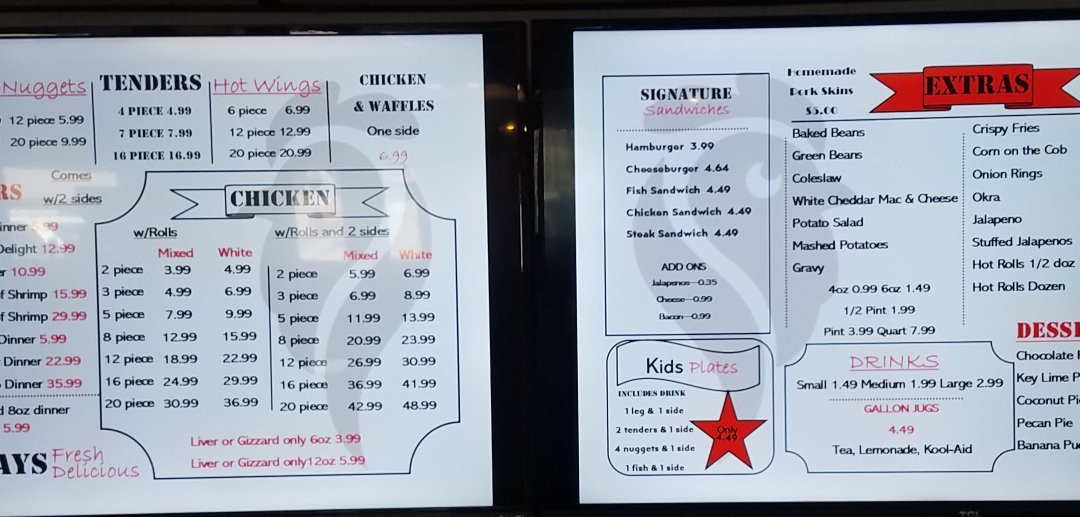 Nuggets
12 piece 5.99
20 piece 9.99
TENDERS
4 PIECE 4.99
7 PIECE 7.99
16 PIECE 16.99
Hot Wings
6 piece 6.99
12 piece 12.99
20 piece 20.99
CHICKEN
& WAFFLES
One side
6.99
Comes
w/2 sides
RS
inner 5.99
Delight 12.99
er 10.99
f Shrimp 15.99
f Shrimp 29.99
Dinner 5.99
Dinner 22.99
Dinner 35.99
d 8oz dinner
5.99
AYS Fresh
Delicious
CHICKEN
w/Rolls
Mixed White
2 piece 3.99 4.99
3 piece 4.99 6.99
5 piece 7.99 9.99
8 piece 12.99 15.99
12 piece 18.99 22.99
16 piece 24.99 29.99
20 piece 30.99 36.99
w/Rolls and 2 sides
Mixed White
2 piece 5.99 6.99
3 piece 6.99 8.99
5 piece 11.99 13.99
8 piece 20.99 23.99
12 piece 26.99 30.99
16 piece 36.99 41.99
20 piece 42.99 48.99
Liver or Gizzard only 6oz 3.99
Liver or Gizzard only12oz 5.99
SIGNATURE
Sandwiches
Hamburger 3.99
Cheeseburger 4.64
Fish Sandwich 4.49
Chicken Sandwich 4.49
Steak Sandwich 4.49
ADD ONS
Jalapenos---0.35
Cheese---0.99
Bacon---0.99
Kids Plates
INCLUDES DRINK
1 leg & 1 side
2 tenders & 1 side
4 nuggets & 1 side
1 fish & 1 side
Only
4.49
Homemade
Pork Skins
$5.00
EXTRAS
Baked Beans
Green Beans
Coleslaw
White Cheddar Mac & Cheese
Potato Salad
Mashed Potatoes
Gravy
4oz 0.99 6oz 1.49
1/2 Pint 1.99
Pint 3.99 Quart 7.99
Crispy Fries
Corn on the Cob
Onion Rings
Okra
Jalapeno
Stuffed Jalapenos
Hot Rolls 1/2 doz
Hot Rolls Dozen
DRINKS
Small 1.49 Medium 1.99 Large 2.99
GALLON JUGS
4.49
Tea, Lemonade, Kool-Aid
DESSE
Chocolate
Key Lime P
Coconut Pi
Pecan Pie
Banana Pu
TCL